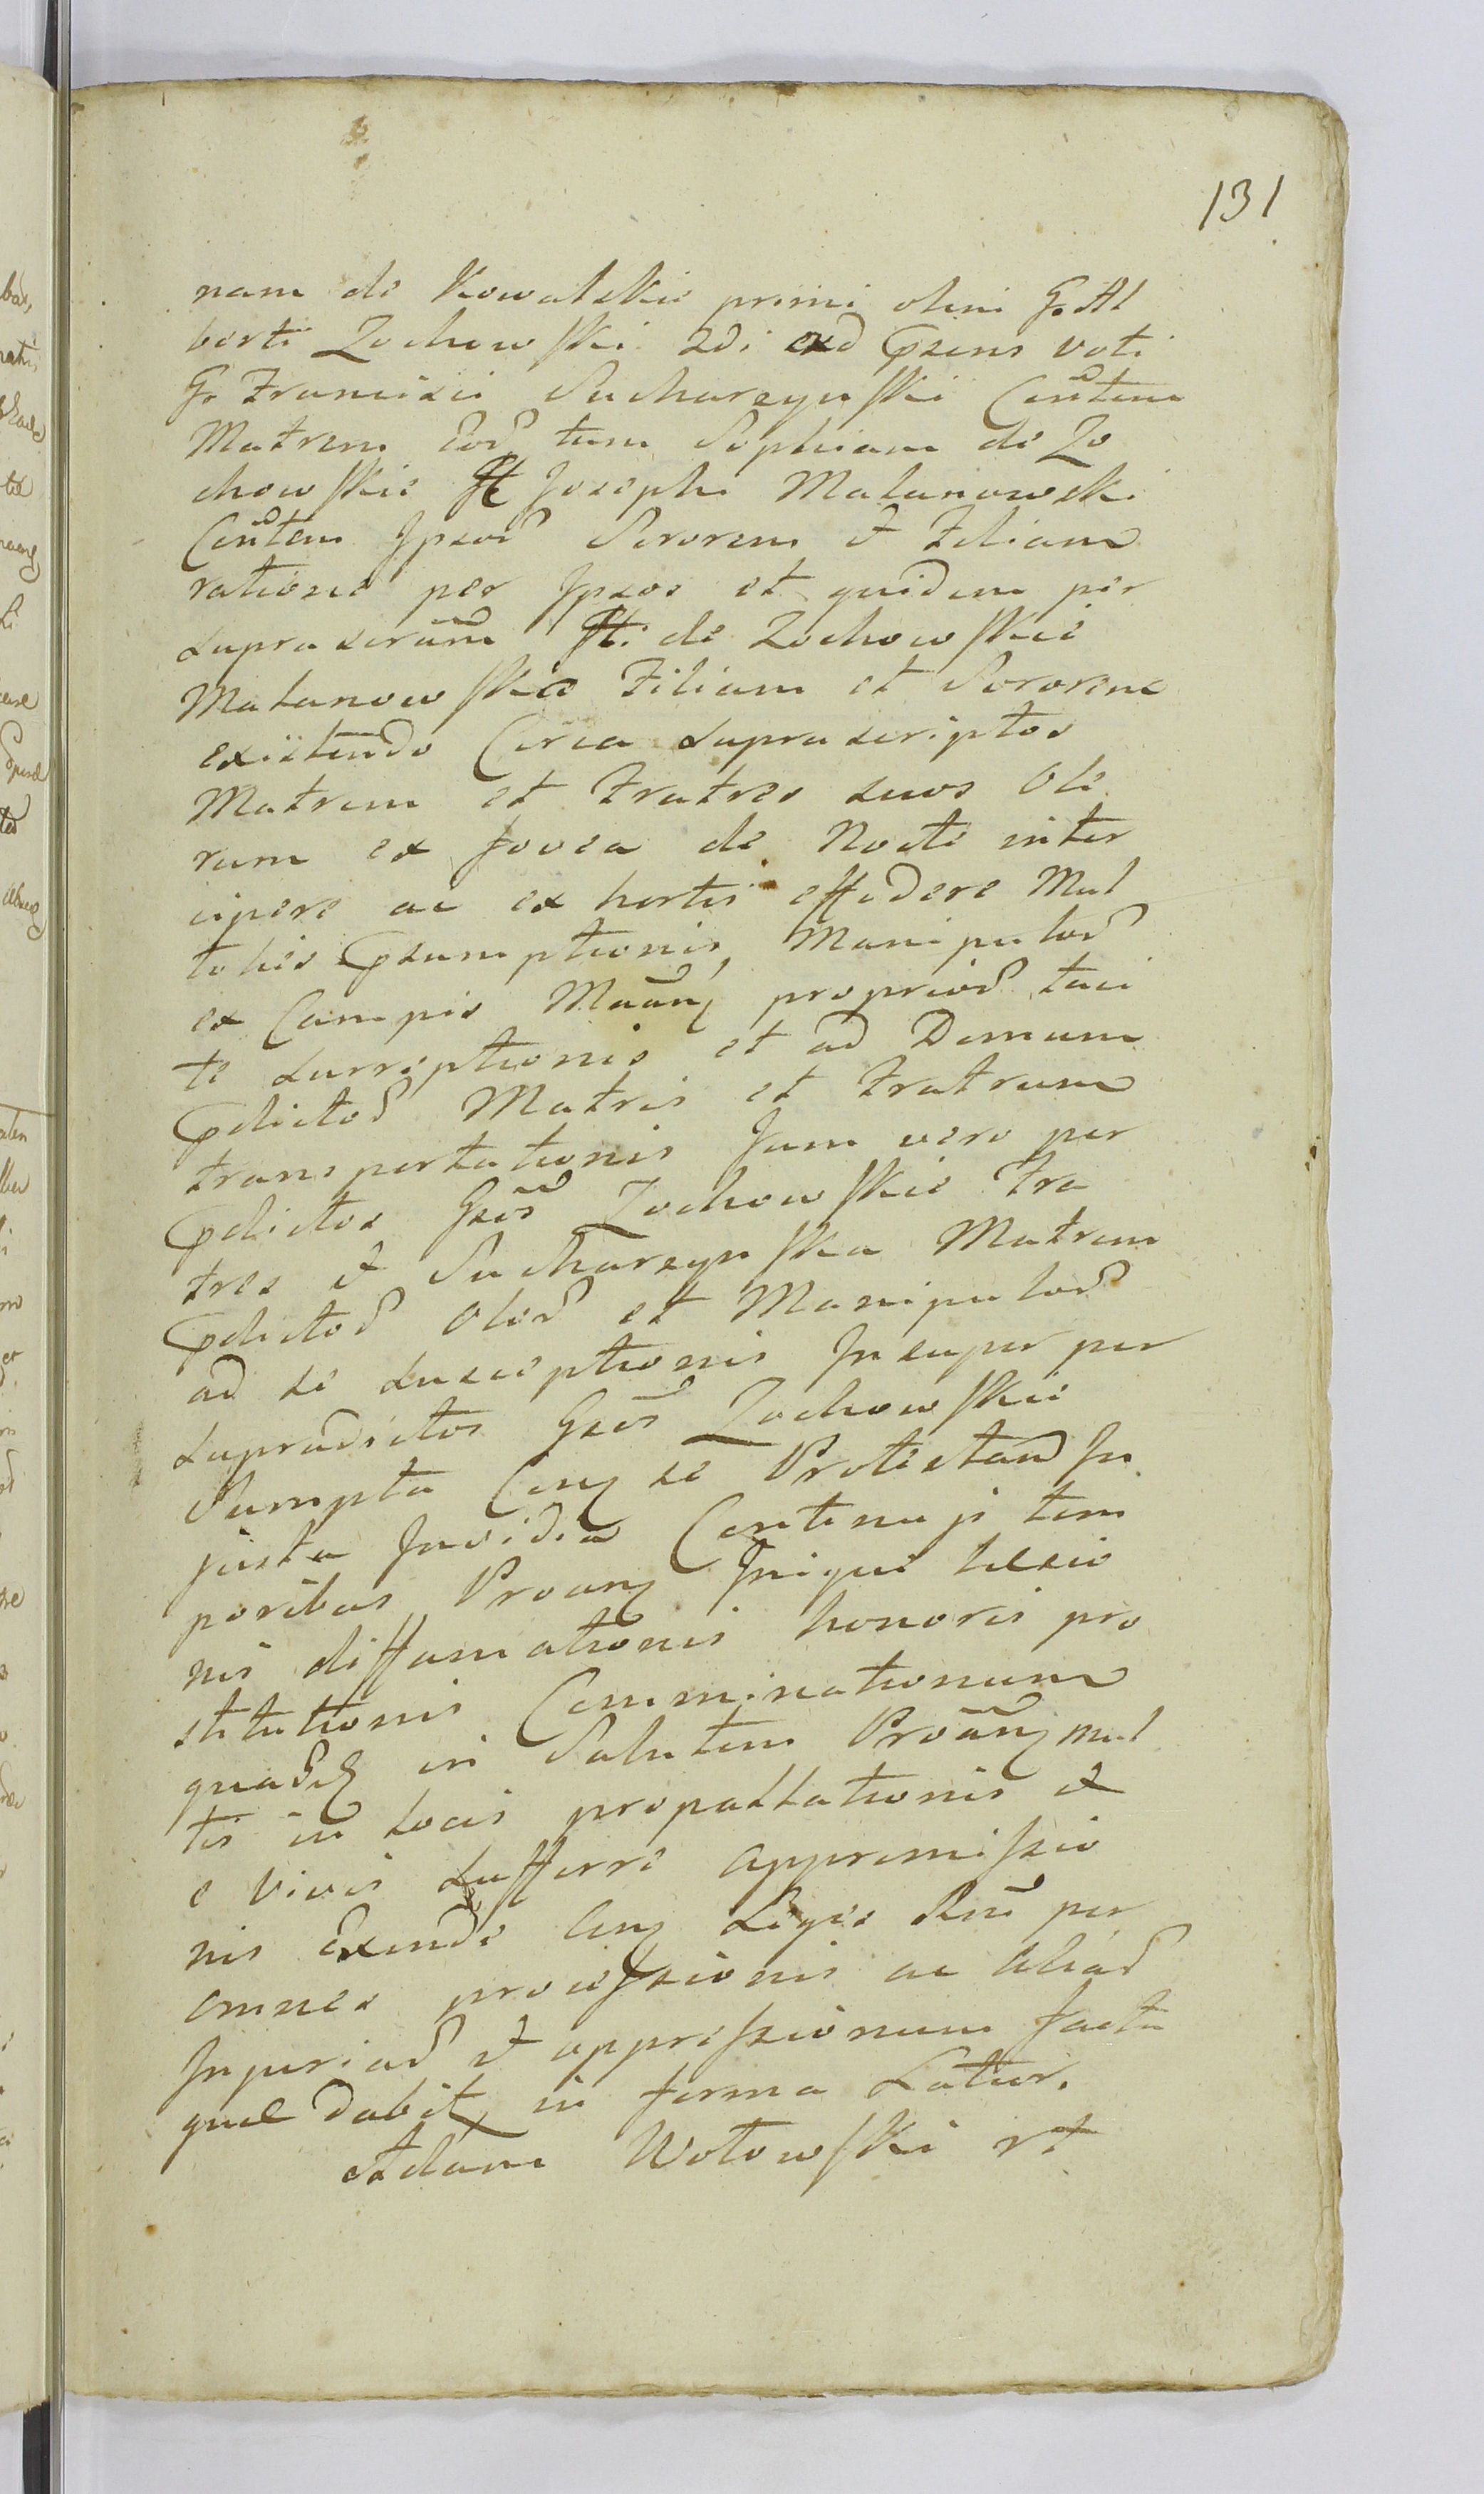 131
nam de Kowalskie primi olim G. Al
berti Zochowski 2di ad psens voti
G. Francisci Sucharzynski Cõntem
Matrem eod tum Sophiam de Zo
chowskie Josephi Malanowski
Cõntem Ipsor Sororem et Filiam
ratione per Ipsos et quidem per
suprascram de Zochowskie
Malanowskie Filiam et Sororem
existendo Circa suprascriptos
Matrem et Fratres suos Ole
rum ex fovea de Nocte inter
cipere ac ex hortis effodere Mul
toties psumptionis, Manipulor
ex Campis proprior taci
te surreptionis et ad Domum
pdictor Matris et Fratrum
transportationis Jam vero per
pdictos Gsos Zochowskie Fra
tres et Sucharzynska Matrem
pdictor Oler et Manipulor
ad se susceptionis Insuper per
supradictos Gsos Zochowskie
Sumpta se Protestan In
justa Invidia Continujs tem
poribus Inique lesio
nis diffamationis honoris pro
stitutionis Comminationum
in Salutem mul
tis in Locis propallationis et
e vivis sufferre appromissio
nis Exinde Legis per
omnes processionis ac aliar
Injuriar et oppressionum facta
que dabit in forma Latior.
Adam Wolowski